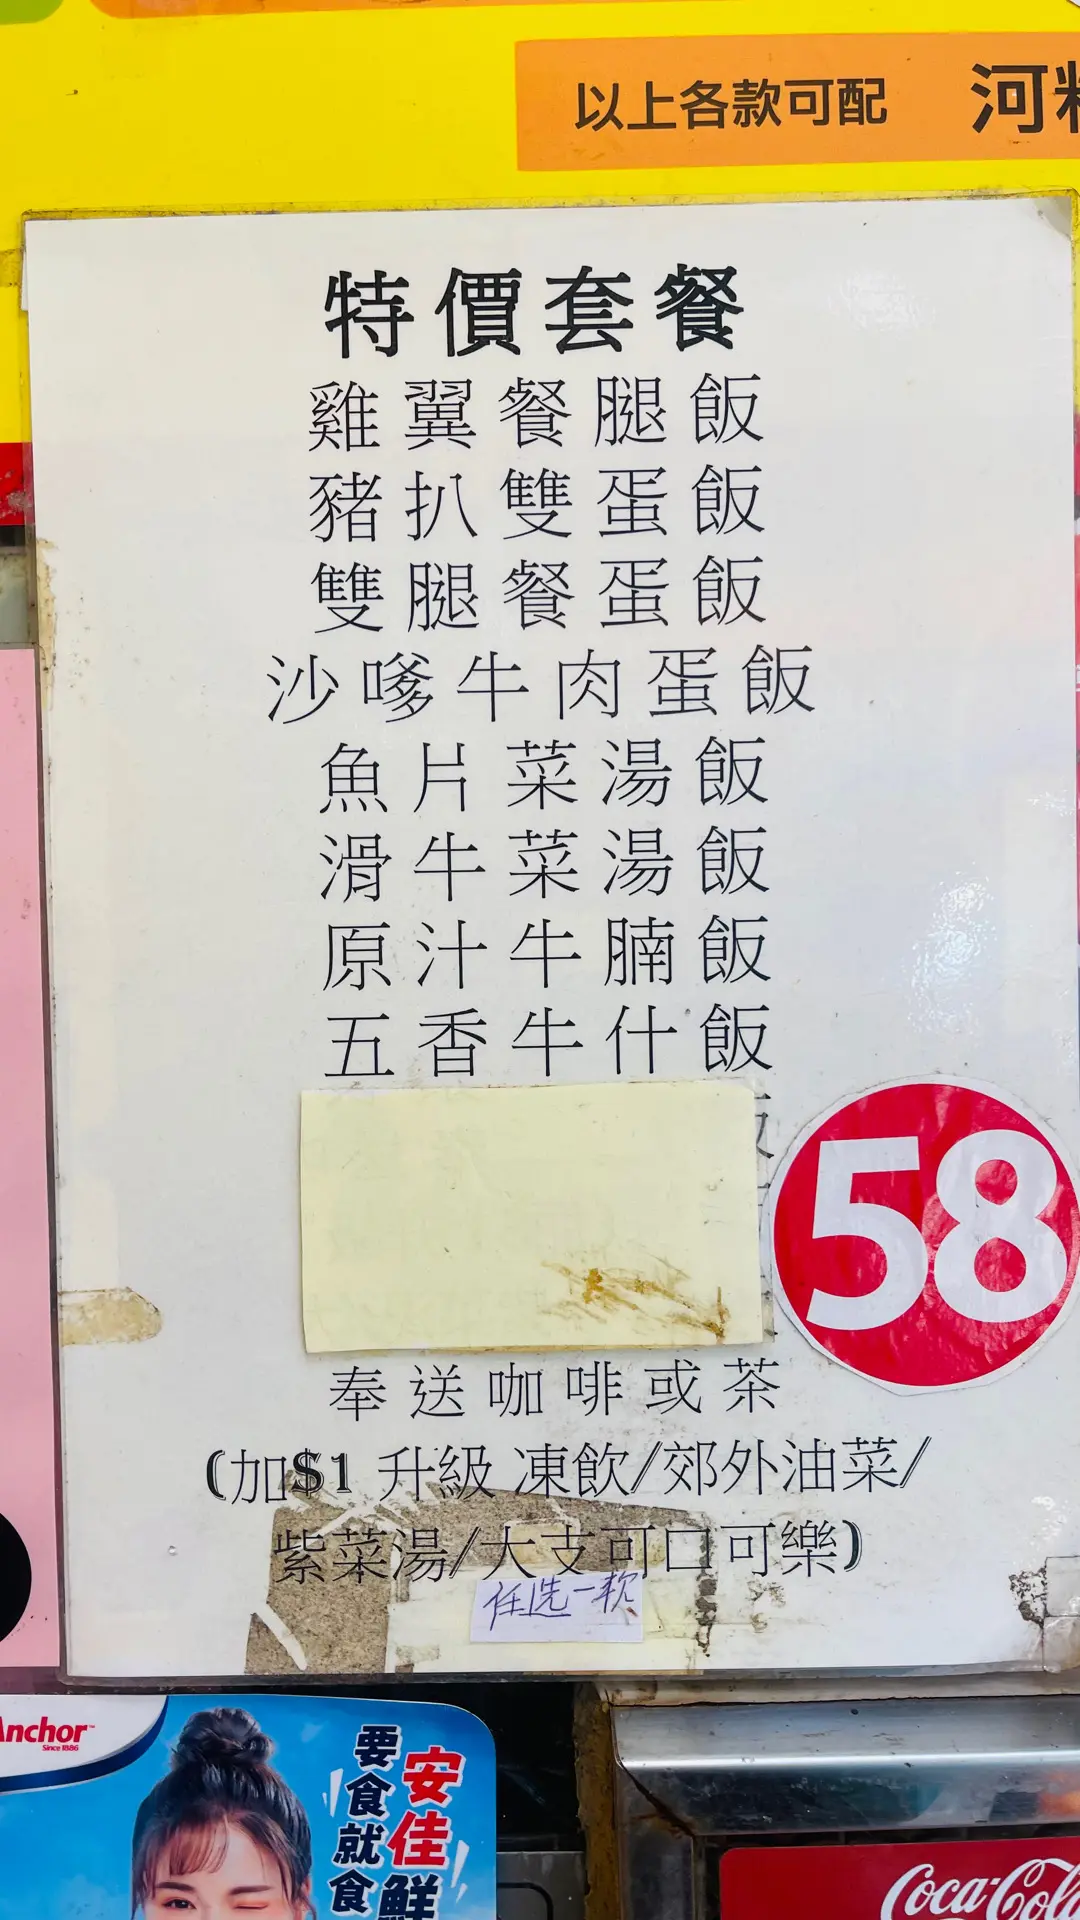 以上各款可配 河粉
特價套餐
雞翼餐腿飯
豬扒雙蛋飯
雙腿餐蛋飯
沙嗲牛肉蛋飯
魚片菜湯飯
滑牛菜湯飯
原汁牛腩飯
五香牛什飯
58
奉送咖啡或茶
(加$1 升級 凍飲/郊外油菜/
紫菜湯/大支可口可樂)
任选一款
Anchor™
Since 1886
要食就食
安佳鮮
Coca-Cola